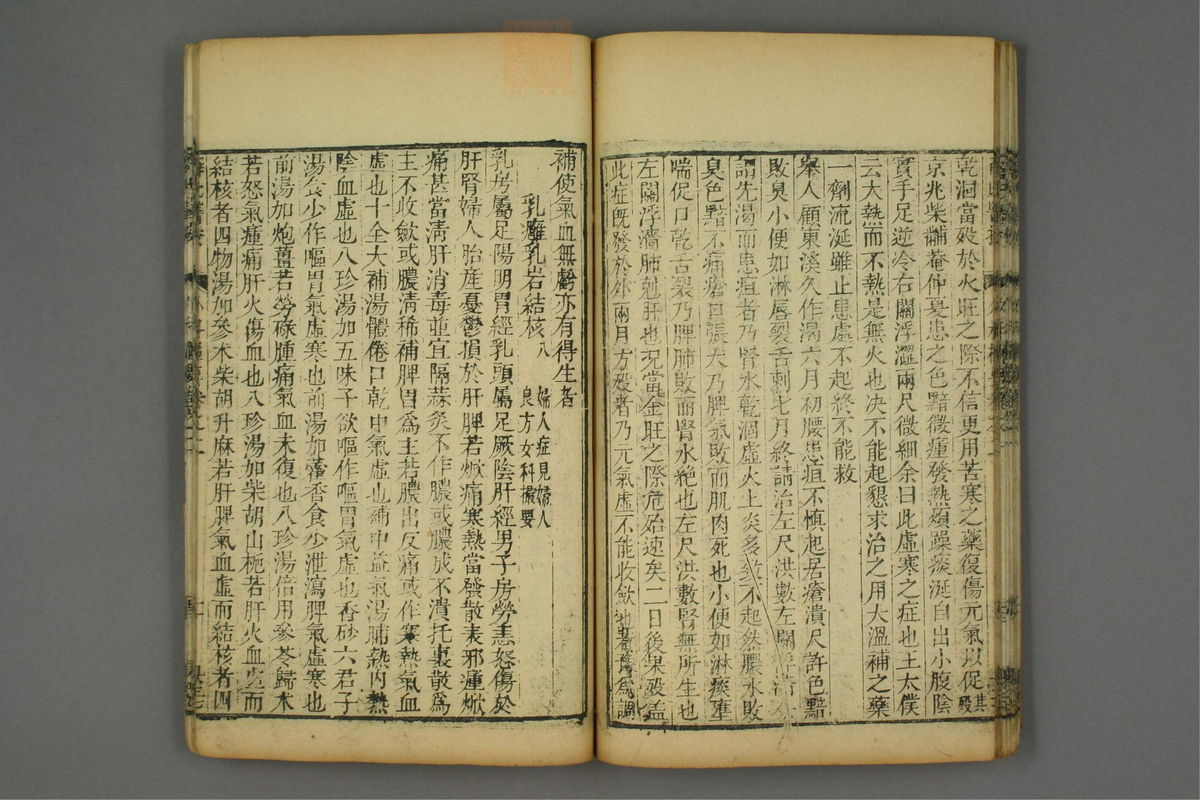 乾涸當殁於火旺之際不信更用苦寒之藥復傷元氣以促其殁
京兆柴黼菴仲夏患之色黯微瘇發熱煩躁痰涎自出小腹陰
實手足逆冷右關浮澀兩尺微細余曰此虛寒之症也王太僕
云大熱而不熱是無火也决不能起懇求治之用大溫補之藥
一劑流涎雖止患處不起終不能救
舉人顧東溪久作渴六月初腰患疽不慎起居瘡潰尺許色黯
敗臭小便如淋唇裂舌刺七月終請治左尺洪數左關浮濇
謂先渴而患疽者乃腎水乾涸虛火上炎多致不起然膿水敗
臭色黯不痛瘡口張大乃脾氣敗而肌肉死也小便如淋痰壅
喘促口乾舌裂乃脾肺敗而腎水絶也左尺洪數腎無所生也
左關浮濇肺剋肝也况當金旺之際危殆速矣二日後果殁盖
此症旣發於外兩月方殁者乃元氣虛不能收歛也若預為調
補使氣血無虧亦有得生者
乳癰乳岩結核八 婦人症見婦人
良方女科撮要
乳房屬足陽明胃經乳頭屬足厥陰肝經男子房勞恚怒傷於
肝腎婦人胎産憂鬱損於肝脾若焮痛寒熱當發散表邪瘇焮
痛甚當淸肝消毒並宜隔蒜灸不作膿或膿成不潰托裏散爲
主不收歛或膿淸稀補脾胃爲主若膿出反痛或作寒熱氣血
虛也十全大補湯體倦口乾中氣虛也補中益氣湯晡熱内熱
陰血虛也八珍湯加五味子欲嘔作嘔胃氣虛也香砂六君子
湯食少作嘔胃氣虛寒也前湯加藿香食少泄瀉脾氣虛寒也
前湯加炮薑若勞碌腫痛氣血未復也八珍湯倍用參芩歸术
若怒氣瘇痛肝火傷血也八珍湯加柴胡山梔若肝火血虛而
結核者四物湯加參术柴胡升麻若肝脾氣血虛而結核者四